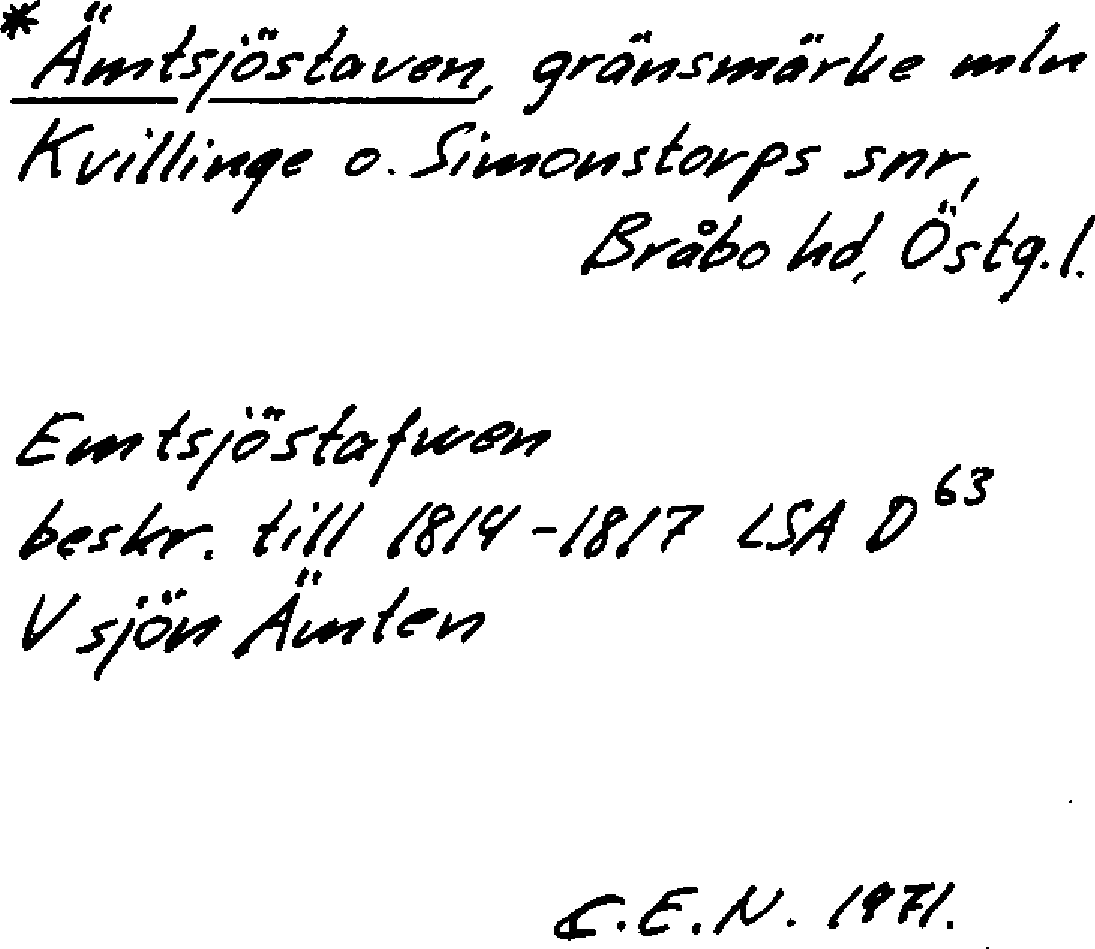 * Ämtsjöstaven, gränsmärke mln
Kvillinge o. Simonstorps snr,
Bråbo hd, Östg.l.
Emtsjöstafwen
beskr. till 1814-1817 LSA D 63
V sjön Ämten
C.E.N. 1971.